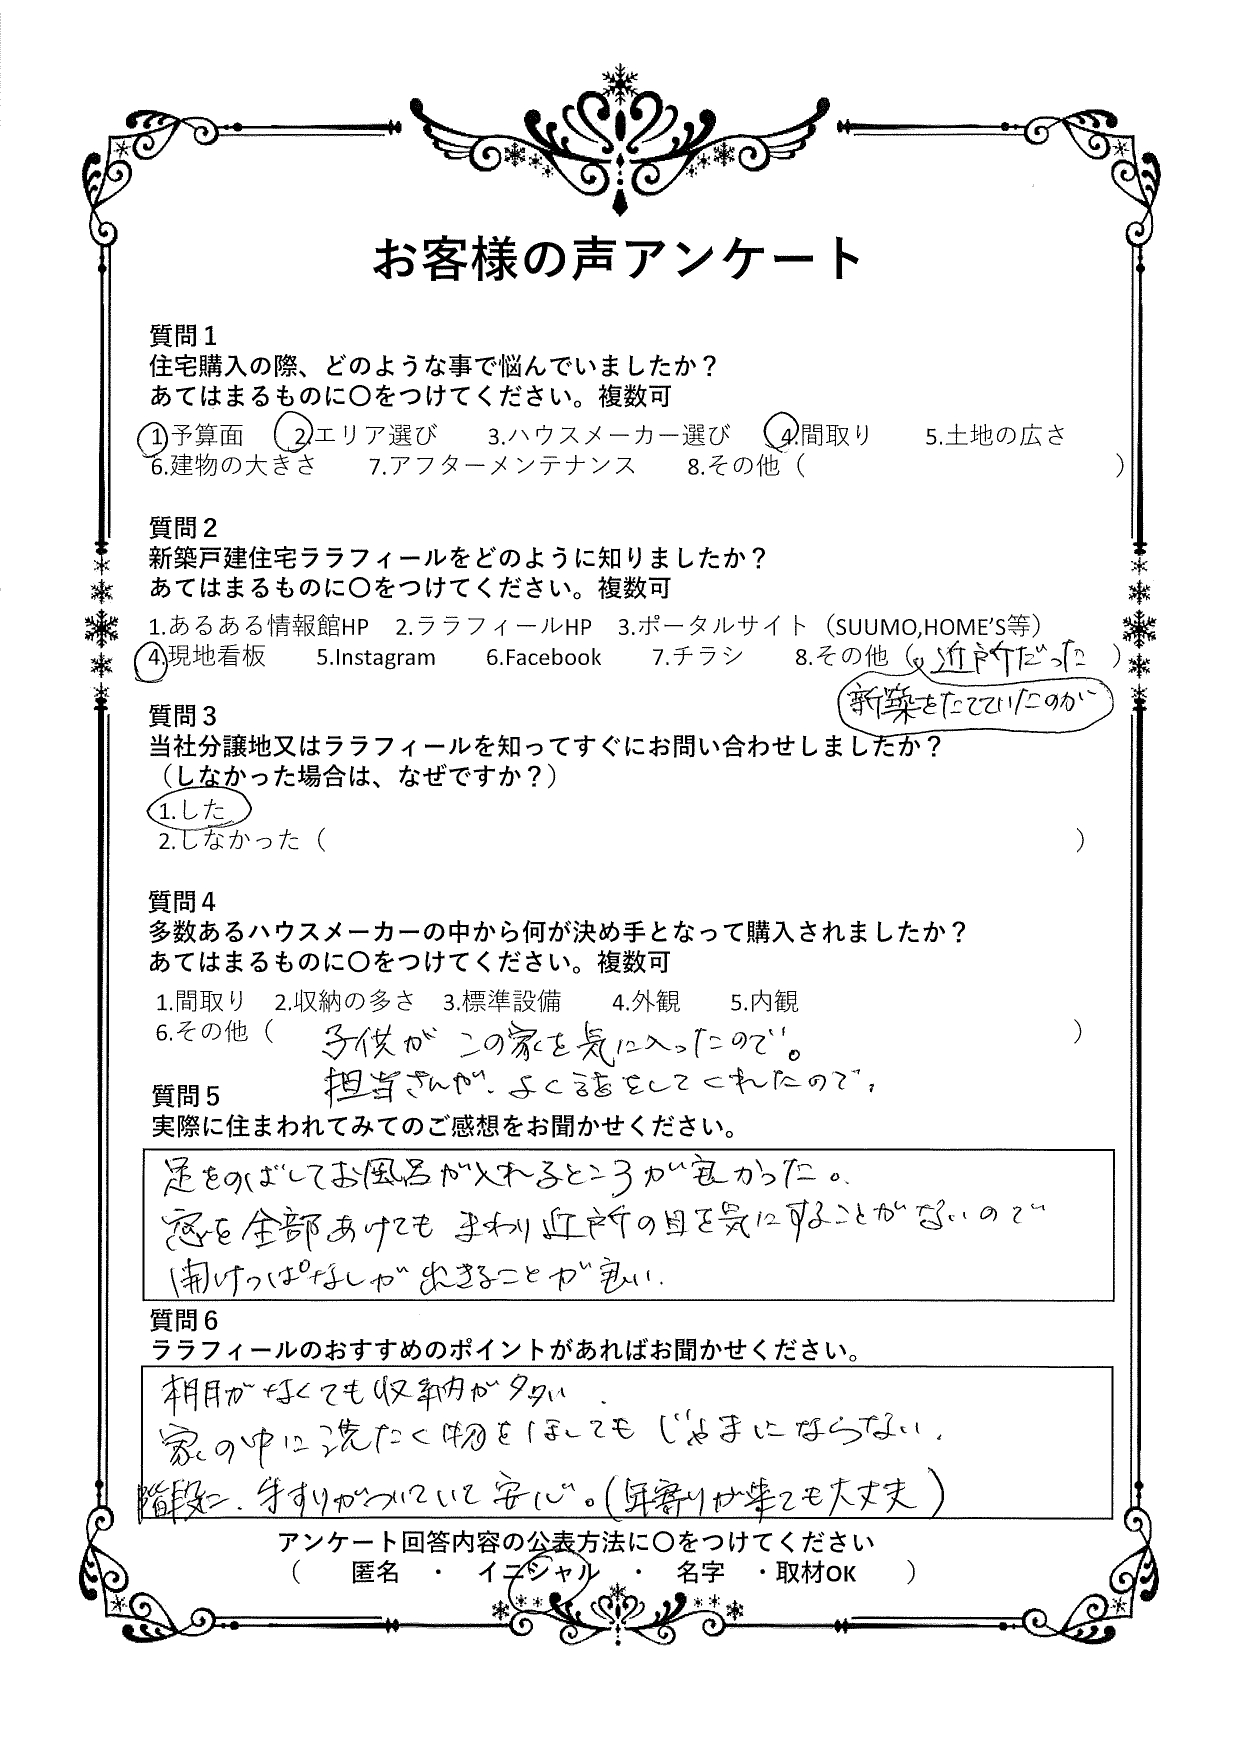 お客様の声アンケート
質問1
住宅購入の際、どのような事で悩んでいましたか？
あてはまるものに〇をつけてください。複数可
1.予算面 2.エリア選び 3.ハウスメーカー選び 4.間取り 5.土地の広さ
6.建物の大きさ 7.アフターメンテナンス 8.その他（ ）
質問2
新築戸建住宅ララフィールをどのように知りましたか？
あてはまるものに〇をつけてください。複数可
1.あるある情報館HP 2.ララフィールHP 3.ポータルサイト（SUUMO,HOME'S等）
4.現地看板 5.Instagram 6.Facebook 7.チラシ 8.その他（近所だった ）
新築をたてていたのが
質問3
当社分譲地又はララフィールを知ってすぐにお問い合わせしましたか？
（しなかった場合は、なぜですか？）
1.した
2.しなかった（ ）
質問4
多数あるハウスメーカーの中から何が決め手となって購入されましたか？
あてはまるものに〇をつけてください。複数可
1.間取り 2.収納の多さ 3.標準設備 4.外観 5.内観
6.その他（ 子供が この家を気に入ったので。 ）
担当さんが、よく話をしてくれたので、
質問5
実際に住まわれてみてのご感想をお聞かせください。
足をのばしてお風呂が入れるところが良かった。
窓を全部あけても まわり近所の目を気にすることがないので
開けっぱなしが出きることが良い.
質問6
ララフィールのおすすめのポイントがあればお聞かせください。
棚がなくても収納が多い
家の中に洗たく物をほしても じゃまにならない.
階段に、手すりがついていて安心。(年寄りが来ても大丈夫)
アンケート回答内容の公表方法に〇をつけてください
（ 匿名 ・ イニシャル ・ 名字 ・取材OK ）